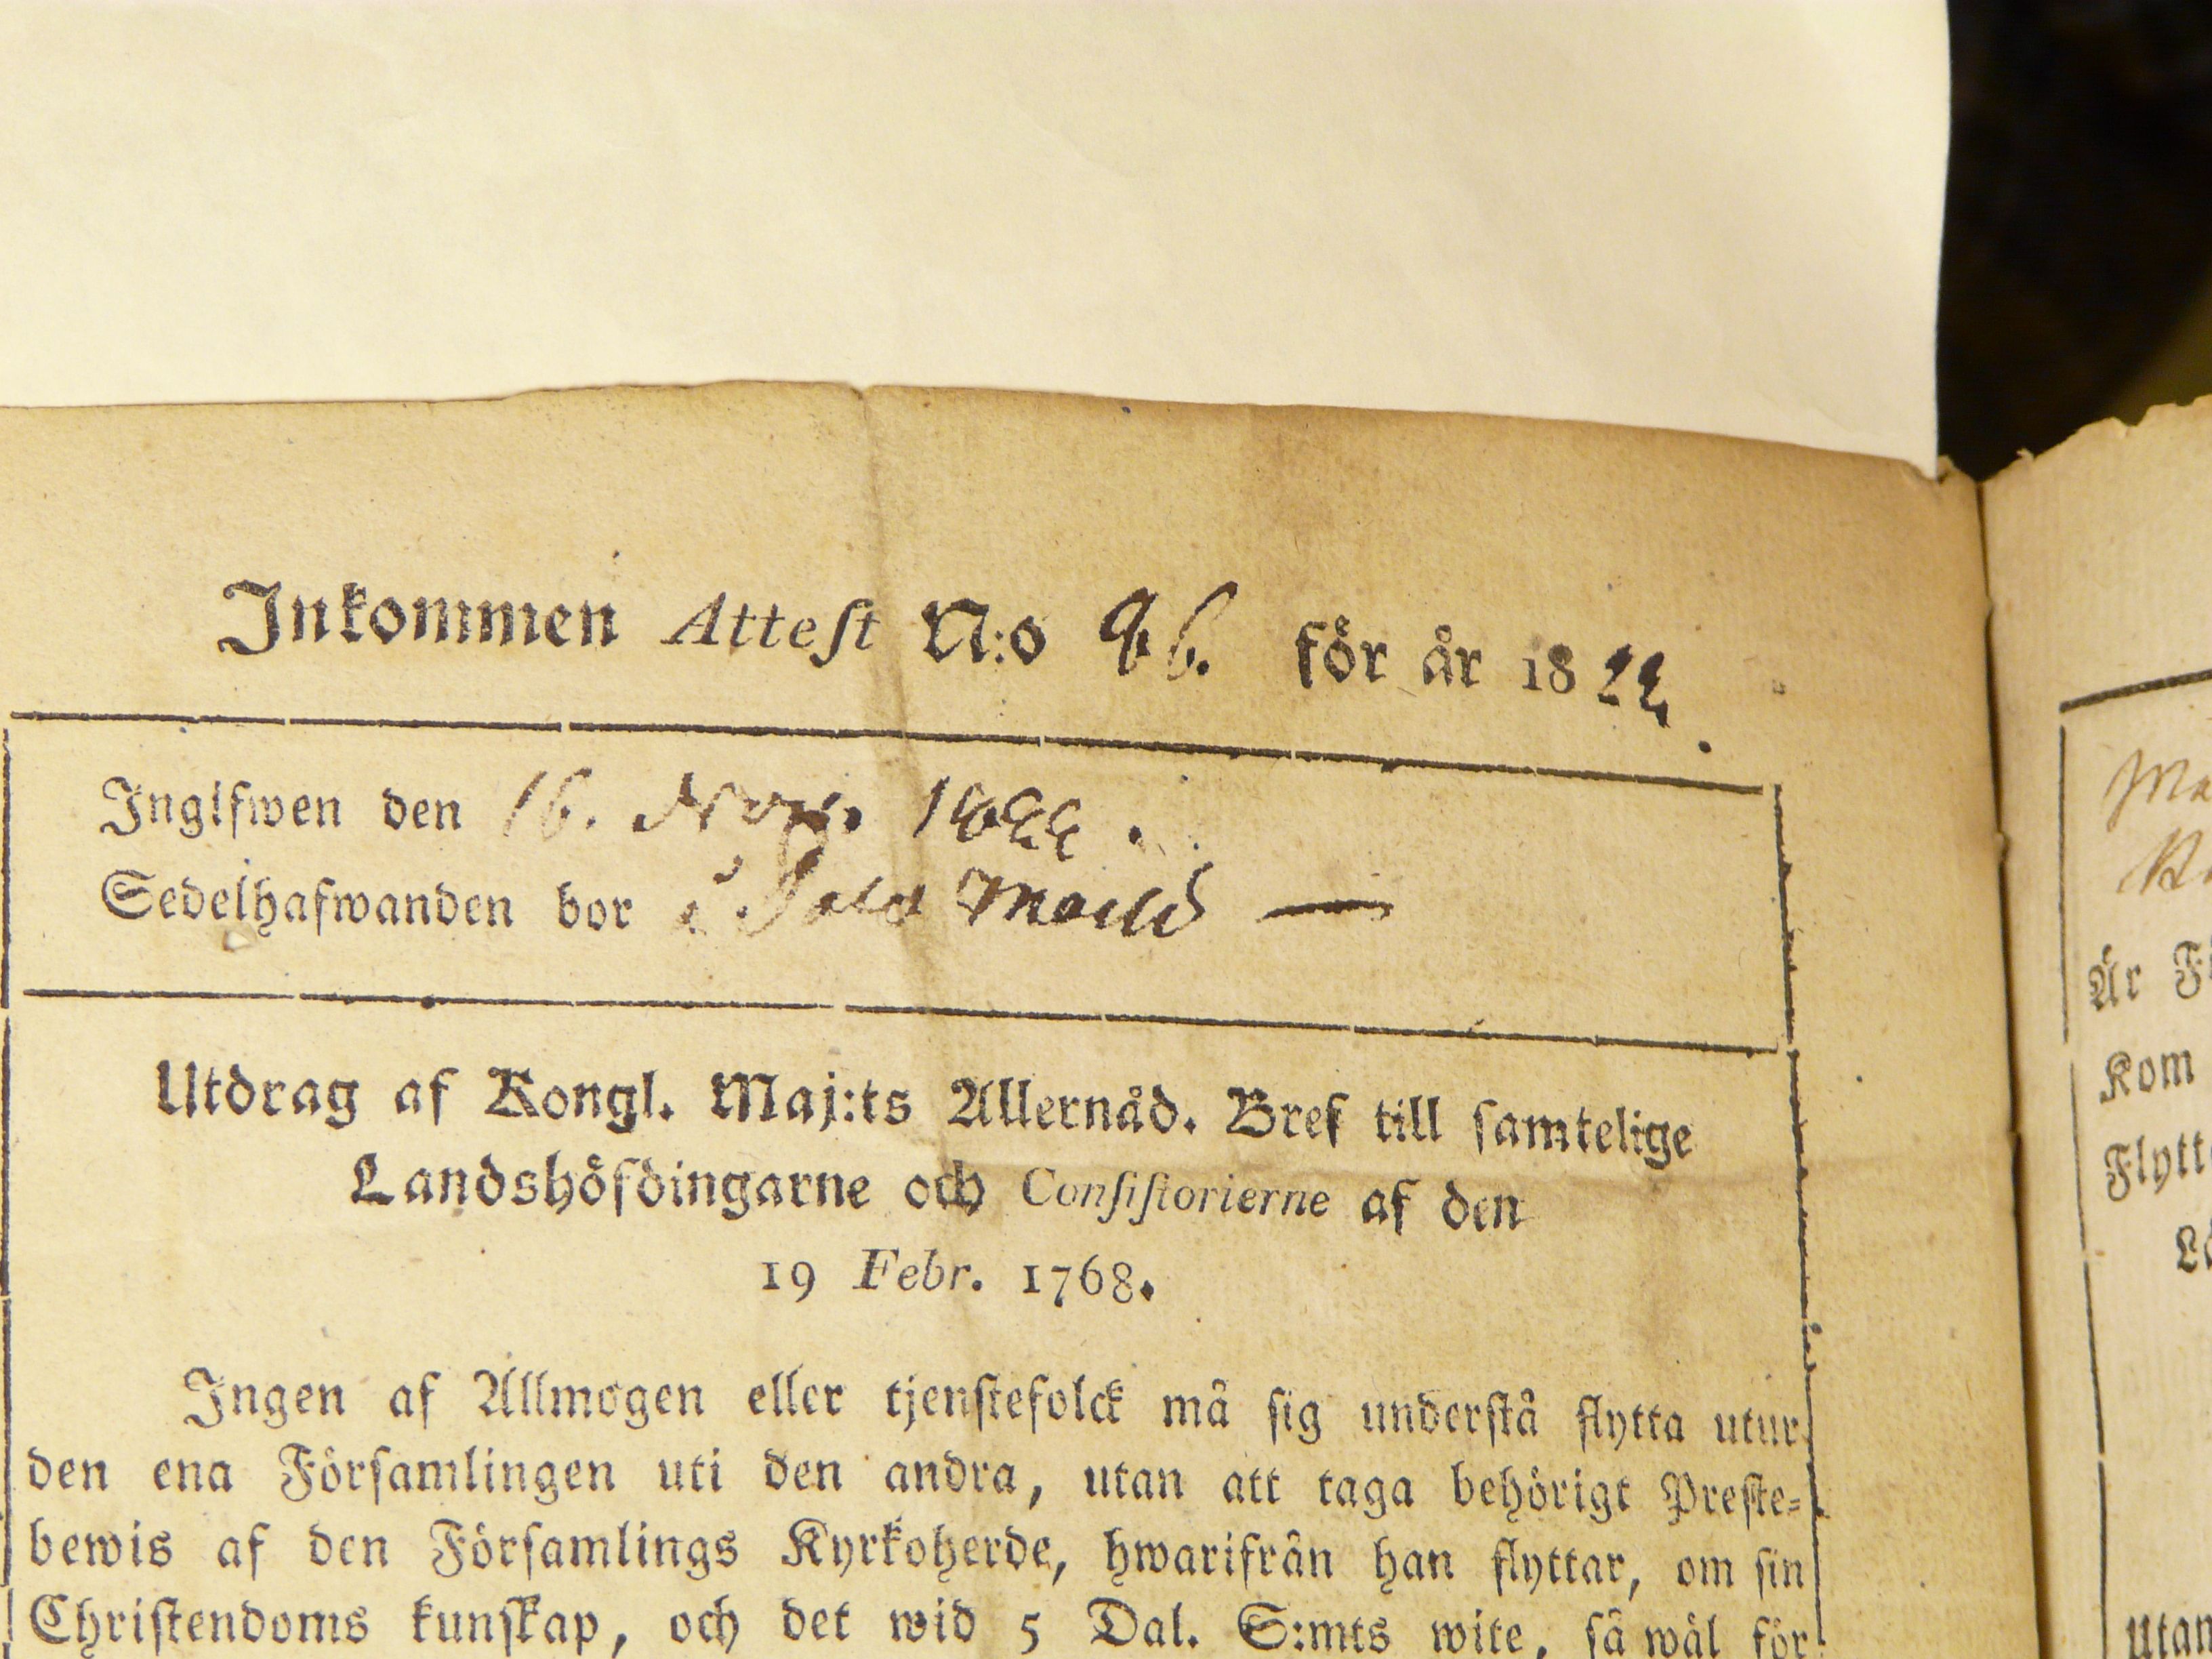 Inkommen Attest N:o 96. för år 1822.
Inglfwen den 16. Nov. 1822.
Sedelhafwanden bor i
Utdrag af Kongl. Maj:ts Allernåd. Bref till samtelige
Landshöfdingarne och Consistorierne af den
19 Febr. 1768.
Ingen af Allmogen eller tjenstefolck må sig understå flytta utur
den ena Församlingen uti den andra, utan att taga behörigt Preste-
bewis af den Församlings Kyrkoherde, hwarifrån han flyttar, om sin
Christendoms kunskap, och det wid 5 Dal. S:mts wite, så wäl för
Är
Kom